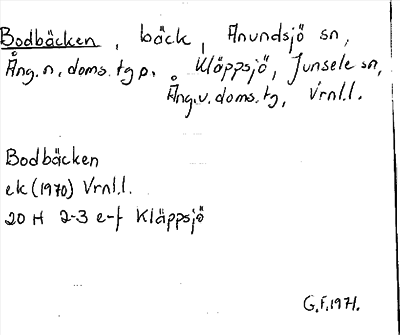 Bodbäcken, bäck, Anundsjö sn,
Ång.n.doms.tg o. Kläppsjö, Junsele sn,
Ång.v.doms.tg, Vrnl.l.
Bodbäcken
ek (1970) Vrnl.l.
20 H 2-3 e-f Kläppsjö
G.F. 1971.